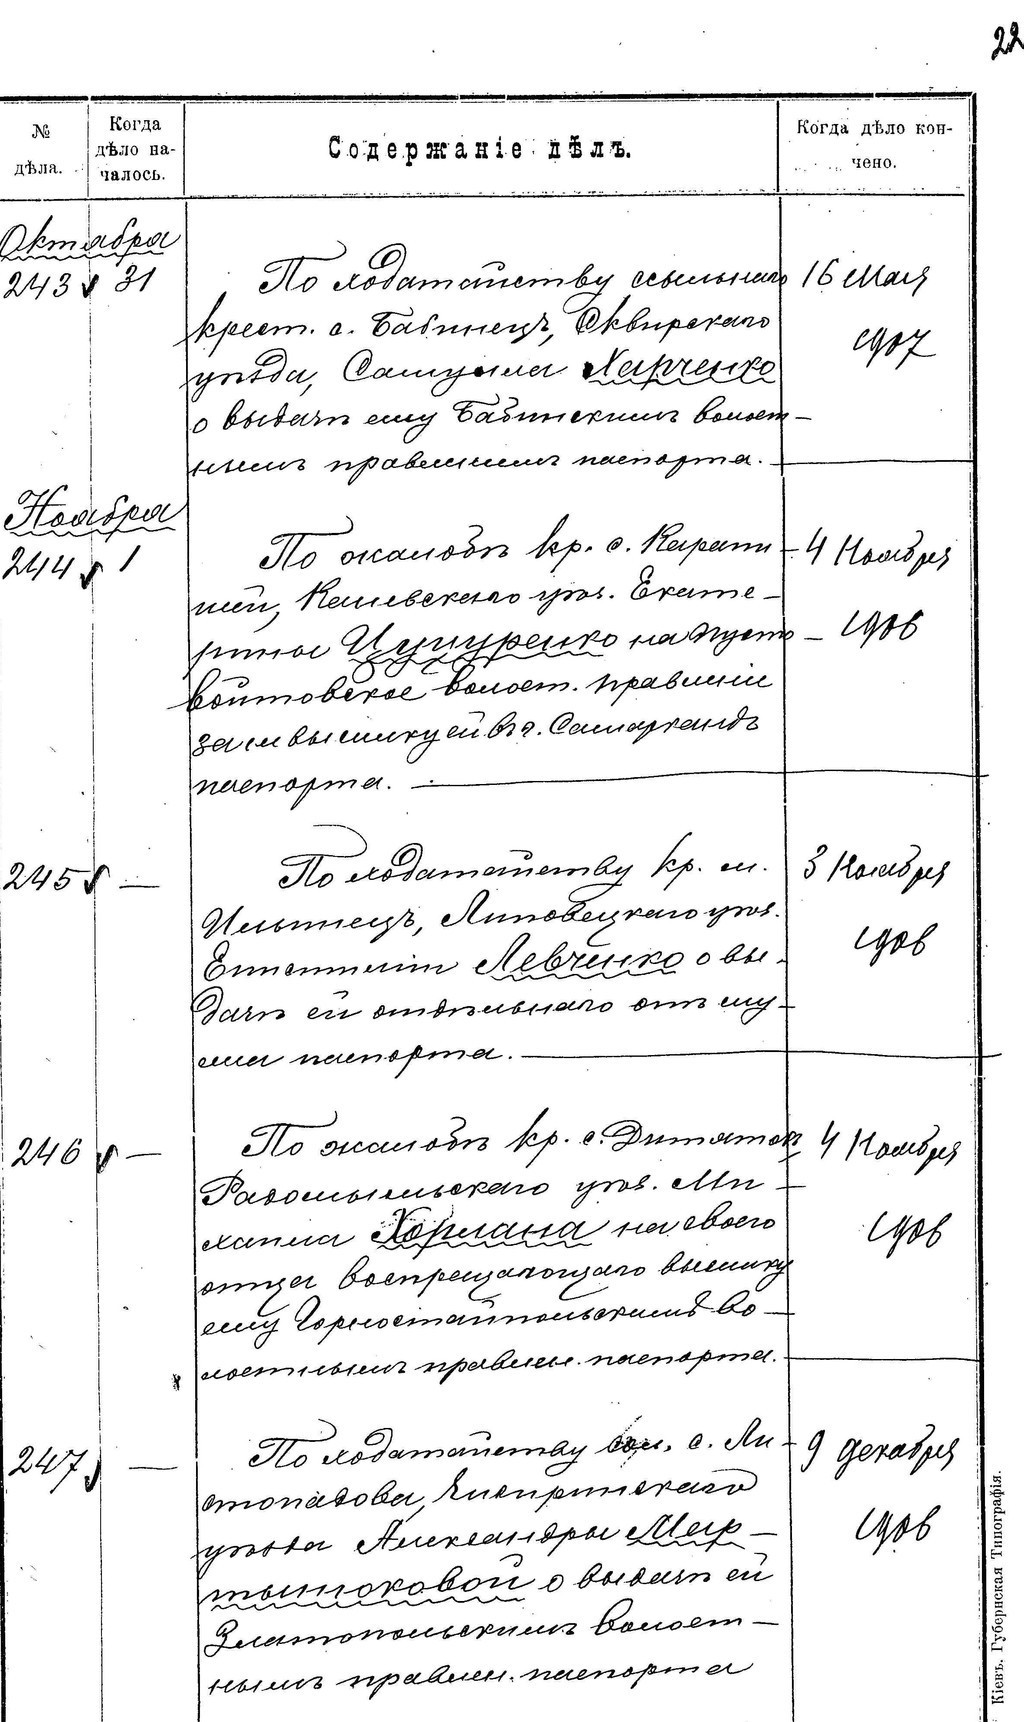 22
№ дѣла.
Когда дѣло началось.
Содержаніе дѣлъ.
Когда дѣло кончено.
Октября
243 31
По ходатайству ссыльнаго
крест. с. Бабинецъ, Сквирскаго
уѣзда, Самуила Харченко
о выдачѣ ему Бабинскимъ волост-
нымъ правленіемъ паспорта.
16 Мая
1907
Ноября
244 1
По жалобѣ кр. с. Карапи
шей, Каневскаго уѣз. Екате-
рины Цуцуренко на Пусто-
войтовское волост. правленіе
за невысылку ей въ г. Самаркандъ
паспорта.
4 Ноября
1906
245 —
По ходатайству кр. м.
Ильинецъ, Липовецкаго уѣз.
Епистиміи Левченко о вы-
дачѣ ей отдѣльнаго отъ му-
жа паспорта.
3 Ноября
1906
246 —
По жалобѣ кр. с. Дитятокъ
Радомысльскаго уѣз. Ми-
хаила Хормана на своего
отца воспрещающаго высылку
ему Горностайпольскимъ во-
лостнымъ правлен. паспорта.
4 Ноября
1906
247 —
По ходатайству с. Ли-
стопадова, Чигиринскаго
уѣзда Александры Мар-
тынюковой о выдачѣ ей
Златопольскимъ волост-
нымъ правлен. паспорта
9 декабря
1906
Кіевъ. Губернская Типографія.